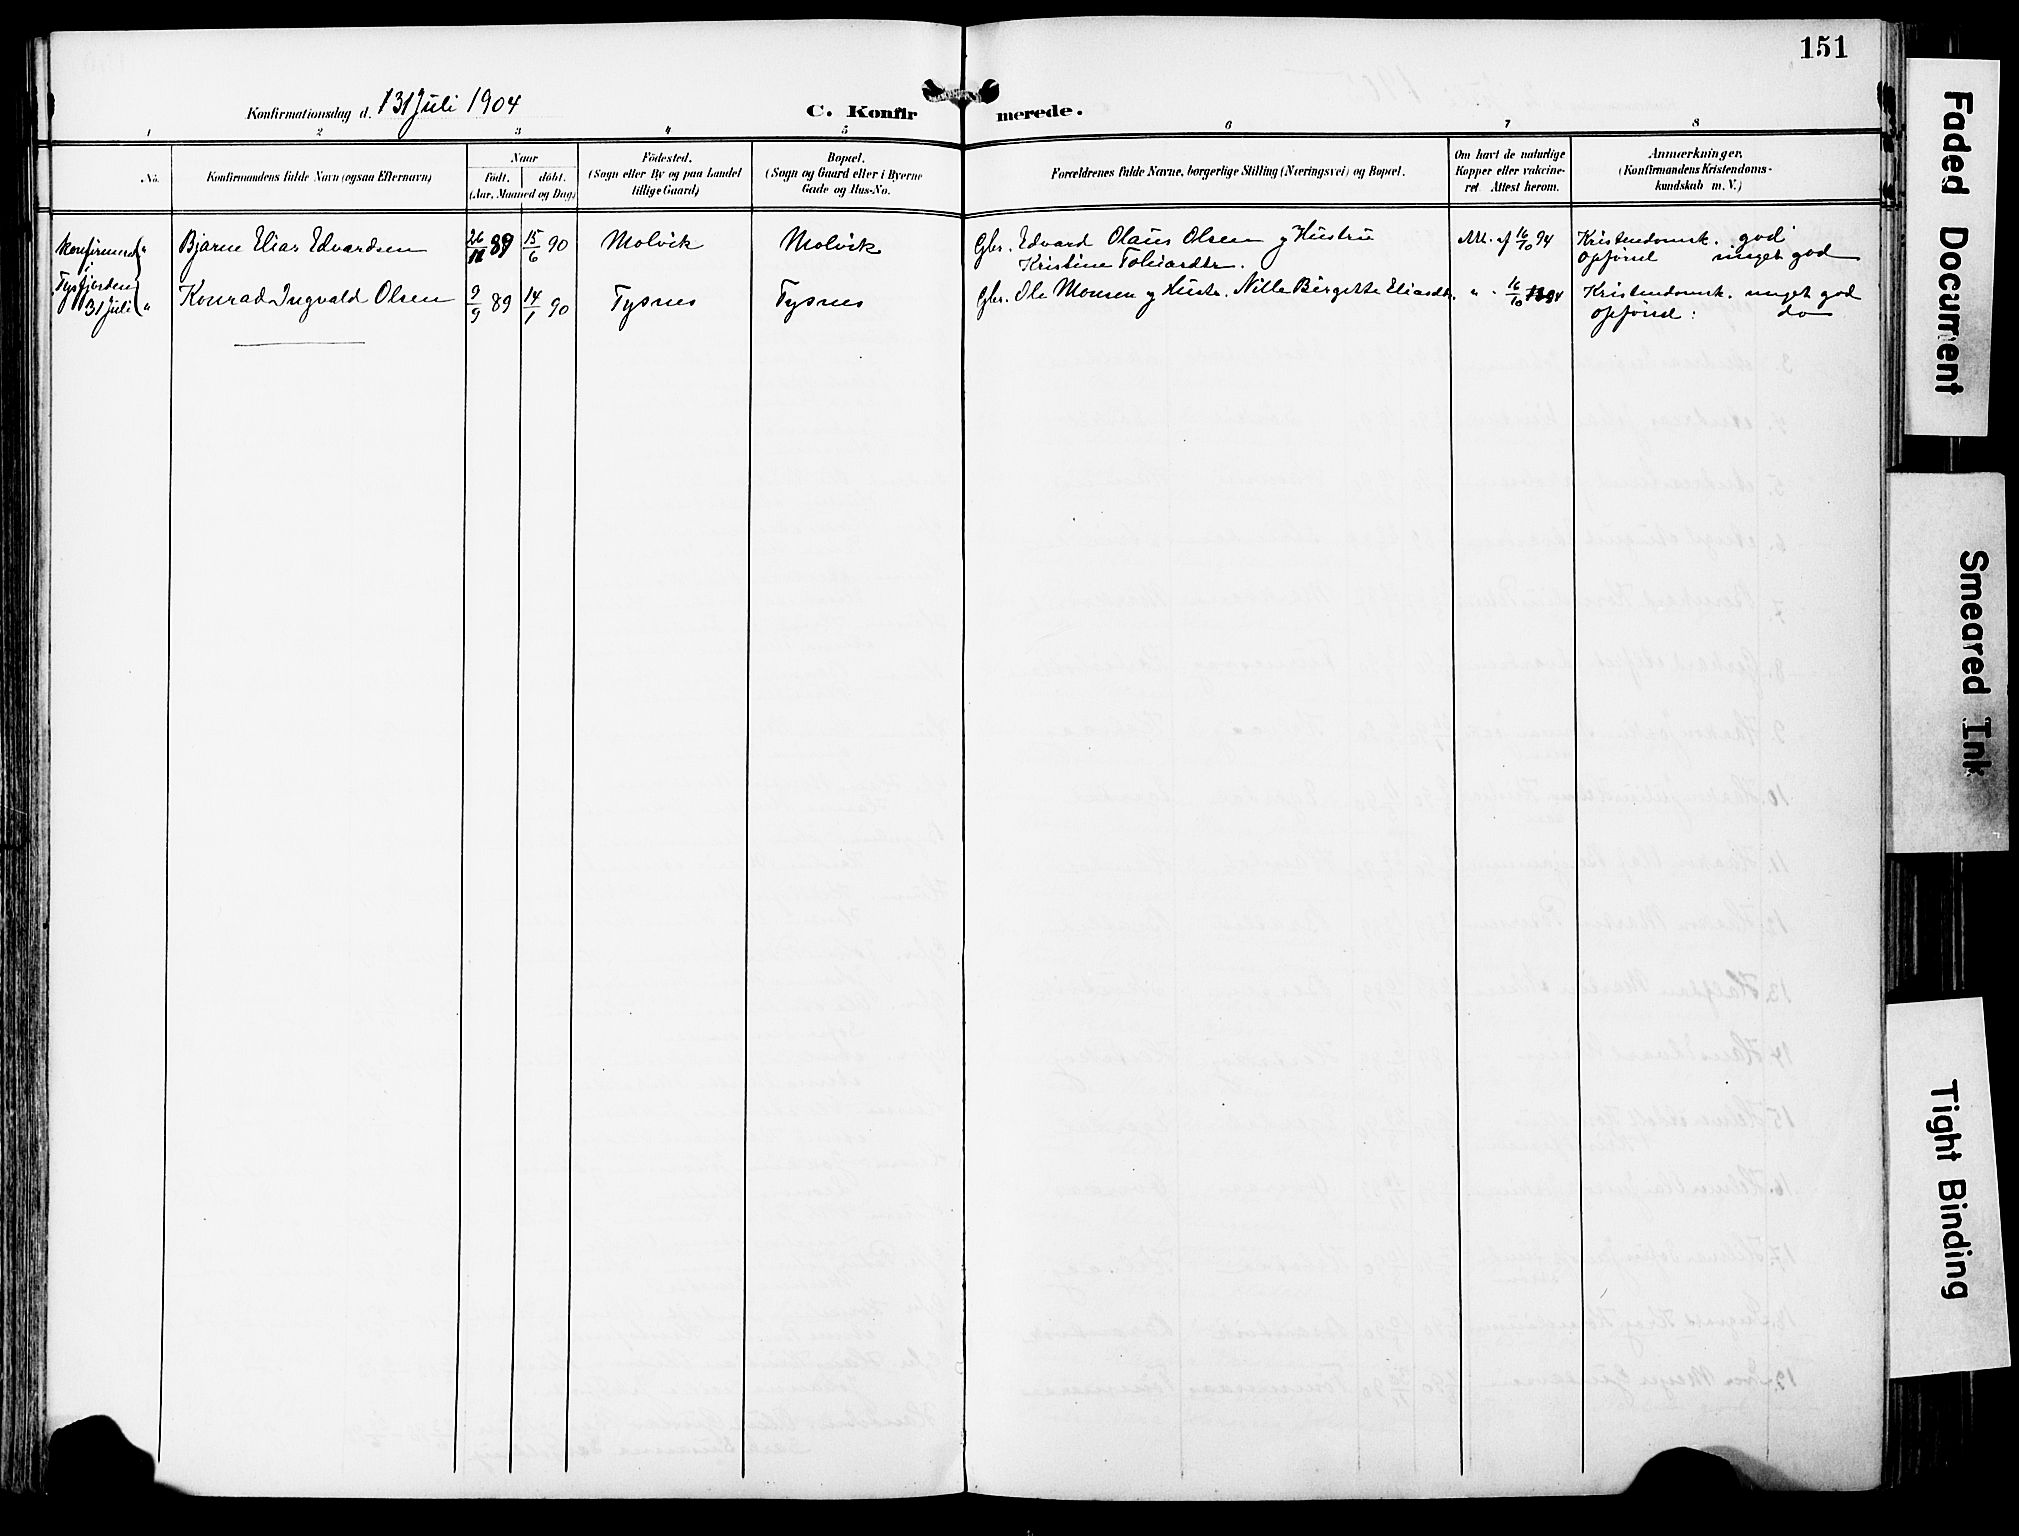 151
Konfirmationsdag d. 31 Juli 1904
C. Konfirmerede.
1 2 3 4 5 6 7 8
No.
Konfirmandens fulde Navn (ogsaa Efternavn)
Naar
født. døbt.
(Aar, Maaned og Dag)
Fødested.
(Sogn eller By og paa Landet
tillige Gaard)
Bopæl.
(Sogn og Gaard eller i Byerne
Gade og Hus-No.
Forældrenes fulde Navne, borgerlige Stilling (Næringsvei) og Bopæl.
Om havt de naturlige
Kopper eller vakcine-
ret. Attest herom.
Anmærkninger.
(Konfirmandens Kristendoms-
kundskab m. V.)
Konfirmered
i
Tysfjorden
31 Juli
" Bjarne Elias Edvardsen 26/11 89 15/6 90 Molvik Molvik Gbr. Edvard Olaus Olsen og Hustru Att. af 16/10 94 Kristendomsk. god
Kristine Opførsel meget god
" Konrad Ingvald Olsen 9/9 89 14/1 90 Tysnes Tysnes Gbr. Ole Monsen og Hustr. Nille Birgitte Eliasdtr. " " 16/10 94 Kristendomsk. meget god
Opførsel: do
Faded Document
Smeared Ink
Tight Binding